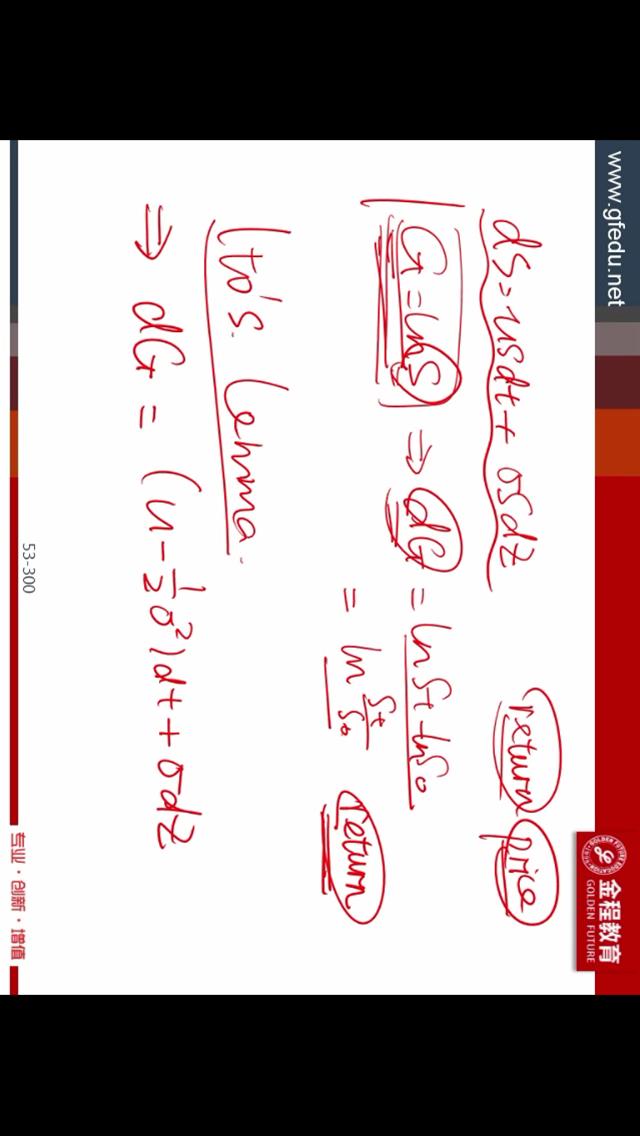 www.gfedu.net
金程教育
GOLDEN FUTURE
return price
dS = uSdt + σSdz
G = lnS ⇒ dG = lnSt - lnS0
= ln St/S0 return
Ito's. Lehma.
⇒ dG = (u - 1/2 σ²)dt + σdz
53-300
专业·创新·增值